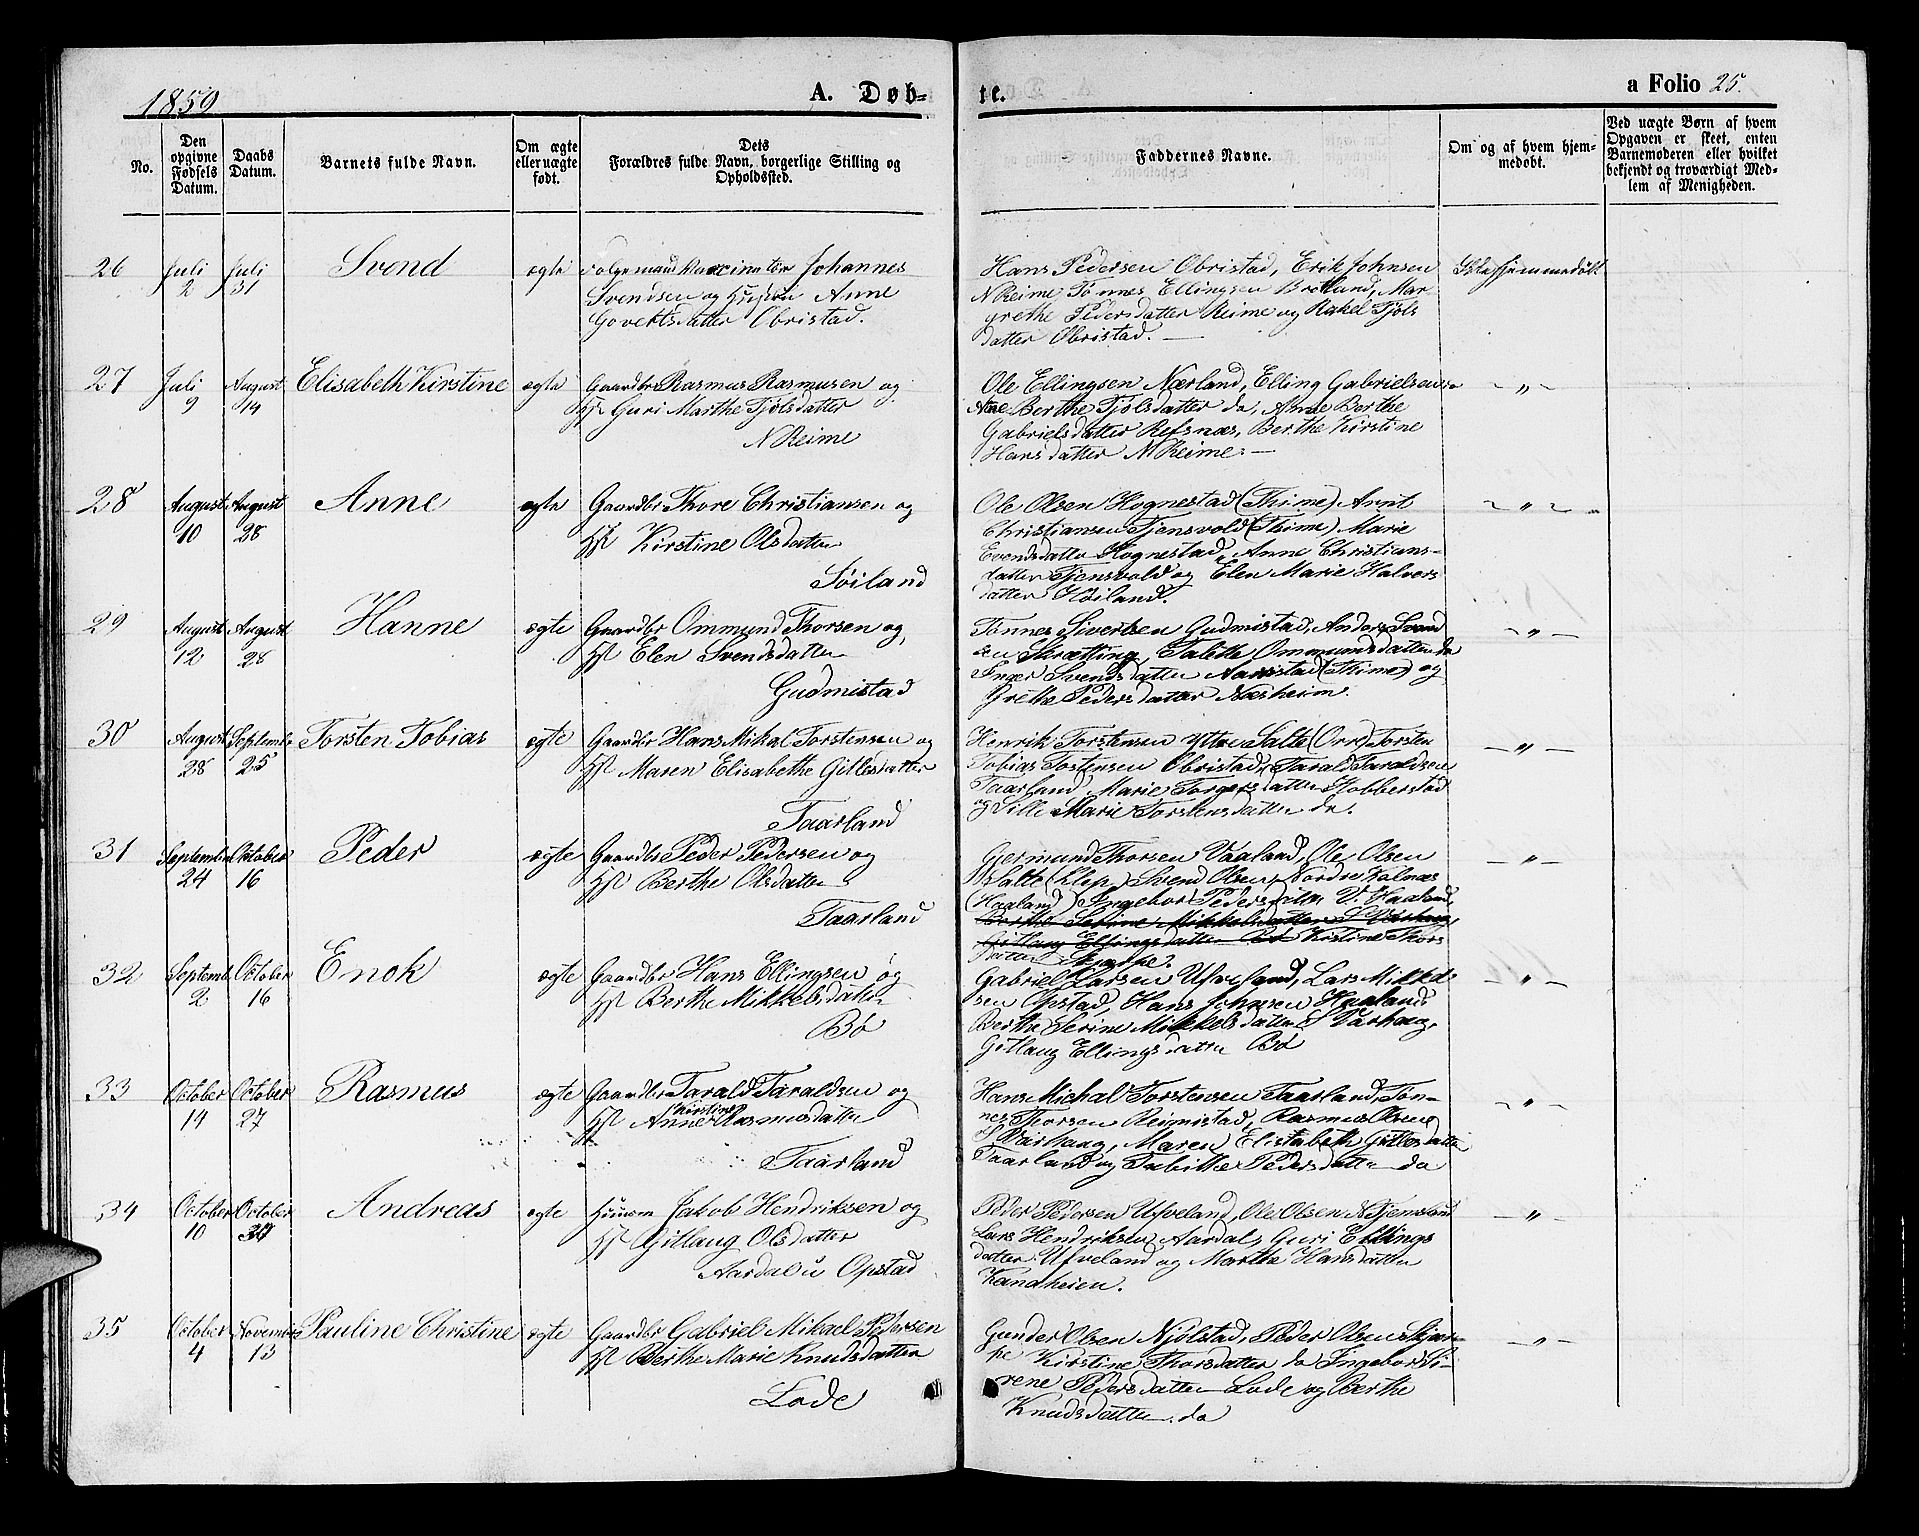 1859
A. Døb-
te.
a Folio 25.
No.
Den opgivne Fødsels Datum.
Daabs Datum.
Barnets fulde Navn.
Om ægte eller uægte født.
Dets Forældres fulde Navn, borgerlige Stilling og Opholdssted.
Faddernes Navne.
Om og af hvem hjemmedøbt.
Ved uægte Børn af hvem Opgaven er skeet, enten Barnemoderen eller hvilket bekjendt og troværdigt Medlem af Menigheden.
26 Juli 2 Juli 31 Svend ægte
Johannes
Svendsen og Anne
Govertsdatter Obristad.
Hans Pedersen Obristad, Erik Johnsen
N Reime, Tønnes Ellingsen Brotland, Mar
grethe Pedersdatter Reime og Rakel Tjøls
datter Obristad. —
27 Juli 9 August 14 Elisabeth Kirstine ægte
Gaardbr Rasmus Rasmusen og
Hst Guri Marthe Tjølsdatter
N Reime
Ole Ellingsen Nærland, Elling Gabrielsen
Berthe Tjølsdatter do, Anne Berthe
Gabrielsdatter Refsnæs, Berthe Kirstine
Hansdatter N Reime. —
– „ –
28 August 10 August 28 Anne ægte
Gaardbr Thore Christiansen og
Hst Kirstine Olsdatter
Søiland
Ole Olsen Hognestad (Thime) Arnt
Christiansen Tjensvold (Thime) Marie
Evendsdatter Hognestad, Anne Christians-
datter Tjensvold og Elen Marie Halvers
datter Høiland.
– „ –
29 August 12 August 28 Hanne ægte
Gaardbr Ommund Thorsen og
Hst Elen Svendsdatter
Gudmistad
Tønnes Sivertsen Gudmistad, Anders Svend
sen Skrætting, Talette Ommundsdatter do
Inger Svendsdatter (Thime) og
Grethe Pedersdatter Næsheim.
– „ –
30 August 28 Septembr 25 Torsten Tobias ægte
Gaardbr Hans Mikal Torstensen og
Hst Maren Elisabethe Gittesdatter
Taarland
Henrik Torstensen Ytre Salte (Orre) Torsten
Tobias Tostensen Obristad, Tarald Taraldsen
Taarland, Marie Torgersdatter Hobberstad
og Sille Marie Torstensdatter do.
– „ –
31 Septembr 24 October 16 Peder ægte
Gaardbr Peder Pedersen og
Hst Berthe Olsdatter
Taarland
Gjermund Thorsen Vaaland, Ole Olsen
N Salte (Klep) Svend Olsen Nordre Kalnæs
(Haaland) Ingebor Pedersdatter V. Haaland,
Berthe Serine Mikkelsdatter S Varhaug,
Gitlaug Ellingsdatter Bø Kistine Thors
datter Skjærpe.
– „ –
32 Septemb. 2 October 16 Enok ægte
Gaardbr Hans Ellingsen og
Hst Berthe Mikkelsdatter
Bø
Gabriel Larsen Ufveland, Lars Mikkel
sen Opstad, Hans Johnsen Haaland
Berthe Serine Mikkelsdatter S Varhaug,
Gitlaug Ellingsdatter Bø
– „ –
33 October 14 October 27 Rasmus ægte
Gaardbr Tarald Taraldsen og
Hst Anne Kirstine Rasmusdatter
Taarland
Hans Michal Torstensen Taarland, Tøn-
nes Thorsen Reimistad, Rasmus Olsen
S Varhaug, Maren Elisabeth Gittesdatter
Taarland og Tabithe Pedersdatter do
– „ –
34 October 10 October 30 Andreas ægte
Huusm Jakob Hendriksen og
Hst Gitlaug Olsdatter
Aardal u Opstad
Peder Pedersen Ufveland, Ole Olsen N Tjemsland
Lars Hendriksen Aardal, Guri Ellings
datter Ufveland og Marthe Hansdatter
Kandheien.
– „ –
35 October 4 Novembr 13 Pauline Christine ægte
Gaardbr Gabriel Mikael Pedersen
Hst Berthe Marie Knudsdatter
Lode
Gunder Olsen Njølstad, Peder Olsen Skjær-
pe Kirstine Thorsdatter do Ingebor Si-
rene Pedersdatter Lode og Berthe
Knudsdatter do
– „ –